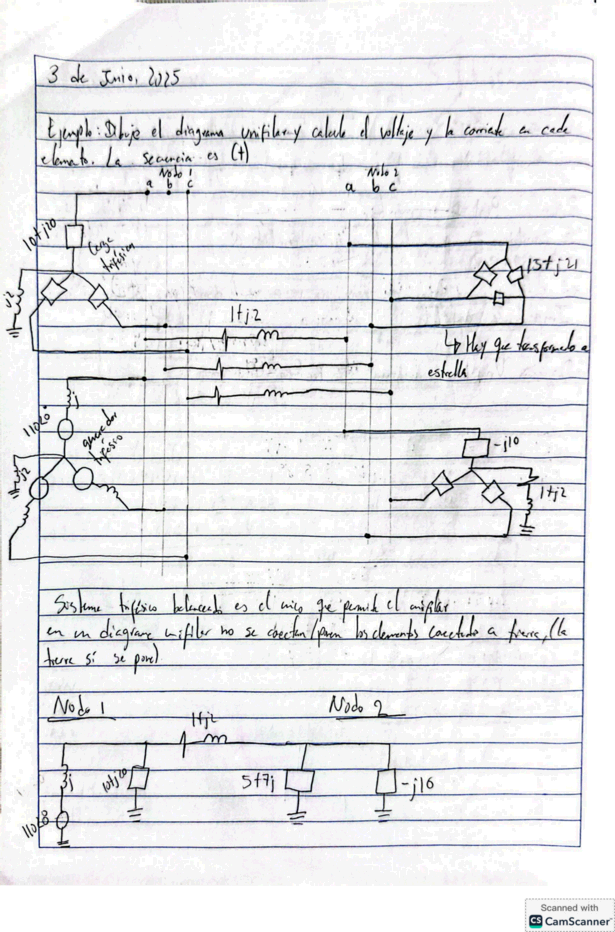 3 de Junio, 2025
Ejemplo: Dibuje el diagrama unifilar y calcule el voltaje y la corriente en cada
elemento. La secuencia es (+)
Nodo 1
a b c
Nodo 2
a b c
10+j20
Carga trifásica
j2
15+j21
↳ Hay que transformarlo a
estrella
1+j2
j
110∠0°
generador trifásico
j2
-j10
1+j2
Sistema trifásico balanceado es el único que permite el unifilar
en un diagrama unifilar no se conectan/ponen los elementos conectados a tierra, (la
tierra sí se pone)
Nodo 1
Nodo 2
1+j2
j
10+j20
5+7j
-j16
110∠0°
Scanned with
CS CamScanner